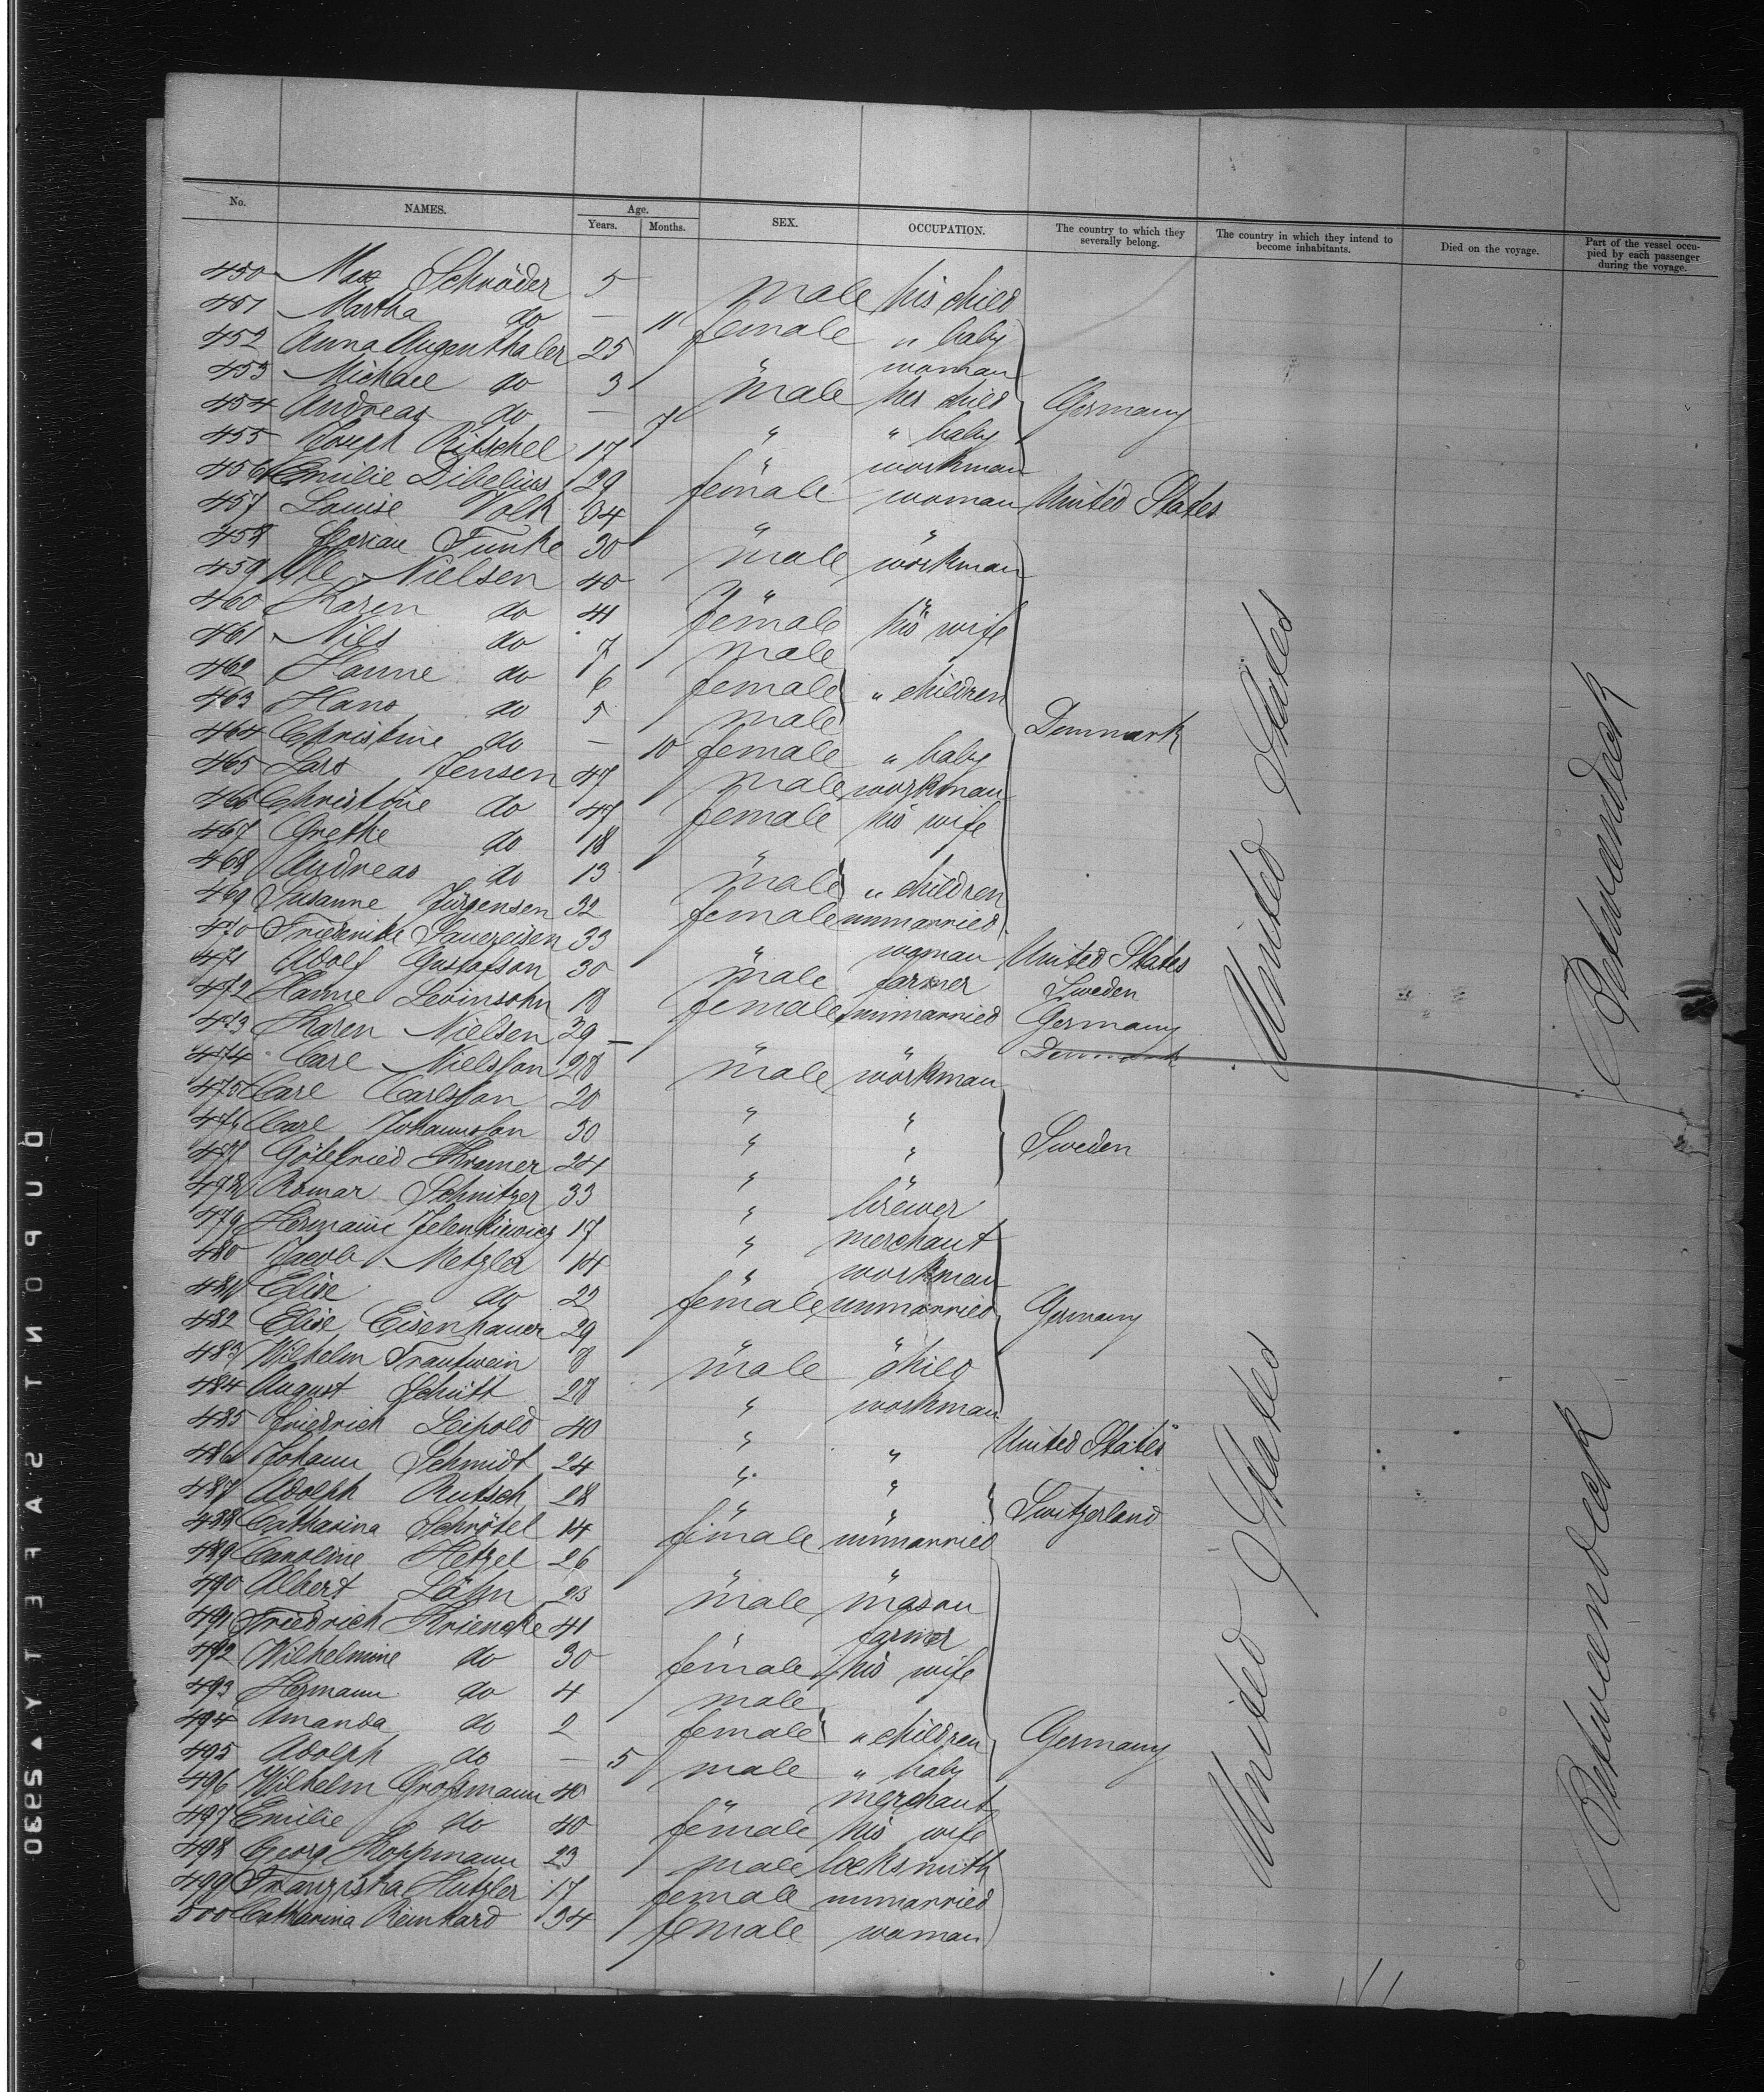 No. NAMES. Age. Years. Months. SEX. OCCUPATION. The country to which they severally belong. The country in which they intend to become inhabitants. Died on the voyage. Part of the vessel occupied by each passenger during the voyage.
450 Max Schröder 5 male his child
451 Martha do — 11 female " baby
452 Anna Augenthaler 25 " woman
453 Michael do 3 male her child Germany
454 Andreas do — 7 " " baby
455 Joseph Ritschel 17 " workman
456 Emilie Dibelius 29 female woman United States
457 Louise Volk 34 " "
458 Florian Funke 30 male workman
459 Ole Nielsen 40 " "
460 Karen do 41 female his wife
461 Nils do 7 male
462 Hanne do 6 female " children
463 Hans do 5 male Denmark
464 Christine do — 10 female " baby
465 Lars Jensen 47 male workman
466 Christine do 47 female his wife
467 Grethe do 18 "
468 Andreas do 13 male " children
469 Susanne Jürgensen 32 female unmarried
470 Friederike Sauereisen 33 " woman United States
471 Adolf Gustafson 30 male farmer Sweden
472 Hanne Levinsohn 19 female unmarried Germany
473 Karen Nielsen 39 — " " Denmark
474 Carl Nielsson 28 male workman
475 Carl Carlsson 20 " "
476 Carl Johannsson 30 " " Sweden
477 Göttfried Kramer 24 " "
478 Roman Schnitzer 33 " brewer
479 Hermann Jelenkiewicz 17 " merchant
480 Jacob Metzler 14 " workman
481 Elise do 22 female unmarried Germany
482 Elise Eisenhauer 29 " "
483 Wilhelm Trautwein 8 male child
484 August Schütt 28 " workman
485 Friedrich Leipold 40 " " United States
486 Johann Schmidt 24 " "
487 Adolph Rutsch 28 " " Switzerland
488 Catharina Schrötel 14 female unmarried
489 Caroline Hetzel 26 " "
490 Albert Lähn 23 male mason
491 Friedrich Kriencke 41 " farmer
492 Wilhelmine do 30 female his wife
493 Hermann do 4 male
494 Amanda do 2 female " children Germany
495 Adolph do — 5 male " baby
496 Wilhelm Großmann 40 " merchant
497 Emilie do 40 female his wife
498 Georg Koppmann 23 male locksmith
499 Franziska Hutzler 17 female unmarried
500 Catharina Reinhard 34 female woman
United States
Betweendeck
United States
Betweendeck
DUPONT SAFETY ▲ S2930